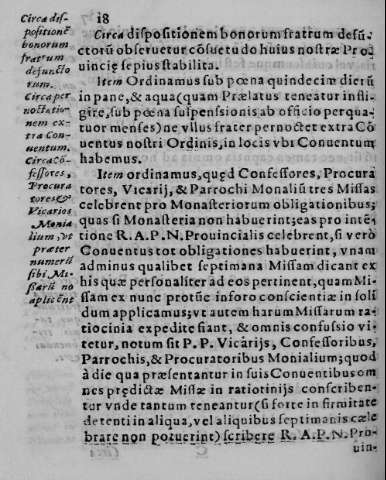 18
Circa dis-
positionẽ
bonorum
fratrum
defuncto
rum.
Circa per
noctation
nem ex-
tra Con-
uentum.
Circa Cõ-
fessores,
Procura
tores &
Vicarios
Monia
lium, vt
præter
numerũ
sibi Mis-
sarũ no
aplicẽnt
Circa dispositionem bonorum fratrum defũ-
ctorũ obseruetur cõsuetudo huius nostræ Pro-
uincię sepius stabilita.
Item Ordinamus sub pœna quindecim dierũ
in pane, & aqua (quam Prælatus teneatur infli-
gire, sub pœna suspensionis ab officio per qua-
tuor menses) ne vllus frater pernoctet extra Cõ
uentus nostri Ordinis, in locis vbi Conuentum
habemus.
Item ordinamus, quęd Confessores, Procura
tores, Vicarij, & Parrochi Monaliũ tres Missas
celebrent pro Monasteriorum obligationibus;
quas si Monasteria non habuerint; eas pro intẽ-
tione R. A. P. N. Prouincialis celebrent, si verò
Conuentus tot obligationes habuerint, vnam
adminus qualibet septimana Missam dicant ex
his quæ personaliter ad eos pertinent, quam Mi-
ssam ex nunc protũc in foro conscientiæ in soli
dum applicamus; vt autem harum Missarum ra-
tiocinia expedite fiant, & omnis confussio vi-
tetur, notum sit P. P. Vicarijs, Confessoribus,
Parrochis, & Procuratoribus Monialium; quod
à die qua præsentantur in suis Conuentibus om
nes prędictæ Missæ in ratiotinijs conscriben-
tur vnde tantum teneantur (si forte infirmitate
detenti in aliqua, vel aliquibus septimanis cæle
brare non potuerint) scribere R. A. P. N. Pro-
uin-